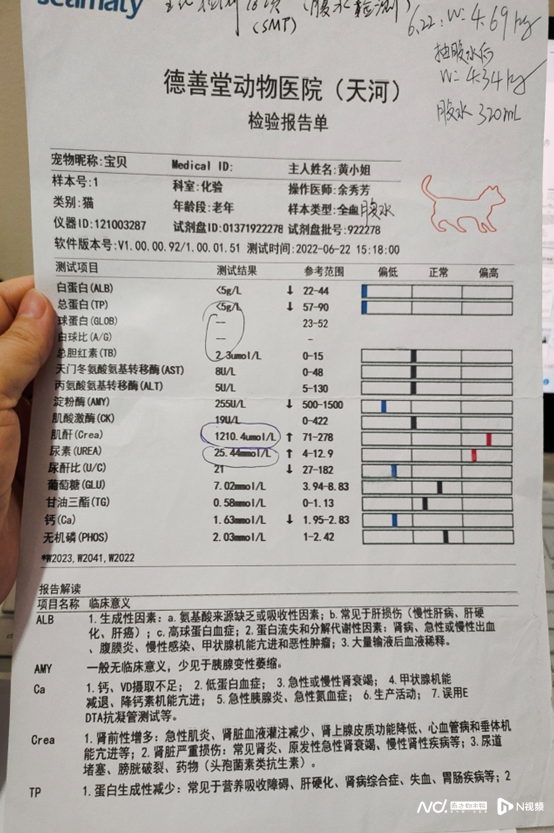 seamaty
(腹水检测)
(SMT)
6.22: W: 4.69kg
抽腹水后
W: 4.34kg
腹水 320mL
德善堂动物医院（天河）
检验报告单
宠物昵称:宝贝 Medical ID: 主人姓名:黄小姐
样本号:1 科室:化验 操作医师:余秀芳
类别:猫 年龄段:老年 样本类型:全血 腹水
仪器ID:121003287 试剂盘ID:01371922278 试剂盘批号:922278
软件版本号:V1.00.00.92/1.00.01.51 测试时间:2022-06-22 15:18:00
测试项目 测试结果 参考范围 偏低 正常 偏高
白蛋白(ALB) <5g/L ↓ 22-44
总蛋白(TP) <5g/L ↓ 57-90
球蛋白(GLOB) -- 23-52
白球比(A/G) -- -
总胆红素(TB) 2.3umol/L 0-15
天门冬氨酸氨基转移酶(AST) 8U/L 0-48
丙氨酸氨基转移酶(ALT) 5U/L 5-130
淀粉酶(AMY) 255U/L ↓ 500-1500
肌酸激酶(CK) 19U/L 0-422
肌酐(Crea) 1210.4umol/L ↑ 71-278
尿素(UREA) 25.44mmol/L ↑ 4-12.9
尿酐比(U/C) 21 ↓ 27-182
葡萄糖(GLU) 7.02mmol/L 3.94-8.83
甘油三酯(TG) 0.58mmol/L 0-1.13
钙(Ca) 1.63mmol/L ↓ 1.95-2.83
无机磷(PHOS) 2.03mmol/L 1-2.42
*W2023, W2041, W2022
报告解读
项目名称 临床意义
ALB 1.生成性因素: a.氨基酸来源缺乏或吸收性因素; b.常见于肝损伤（慢性肝病、肝硬
化、肝癌）; c.高球蛋白血症; 2.蛋白流失和分解代谢性因素: 肾病、急性或慢性出血
、腹膜炎、慢性感染、甲状腺机能亢进和恶性肿瘤; 3.大量输液后血液稀释。
AMY 一般无临床意义，少见于胰腺变性萎缩。
Ca 1.钙、VD摄取不足; 2.低蛋白血症; 3.急性或慢性肾衰竭; 4.甲状腺机能
减退、降钙素机能亢进; 5.急性胰腺炎、急性氮血症; 6.生产活动; 7.误用E
DTA抗凝管测试等。
Crea 1.肾前性增多: 急性肌炎、肾脏血液灌注减少、肾上腺皮质功能降低、心血管病和垂体机
能亢进等; 2.肾脏严重损伤: 常见肾炎、原发性急性肾衰竭、慢性肾性疾病等; 3.尿道
堵塞、膀胱破裂、药物（头孢菌素类抗生素）。
TP 1.蛋白生成性减少: 常见于营养吸收障碍、肝硬化、肾病综合症、失血、胃肠疾病等; 2
N视频